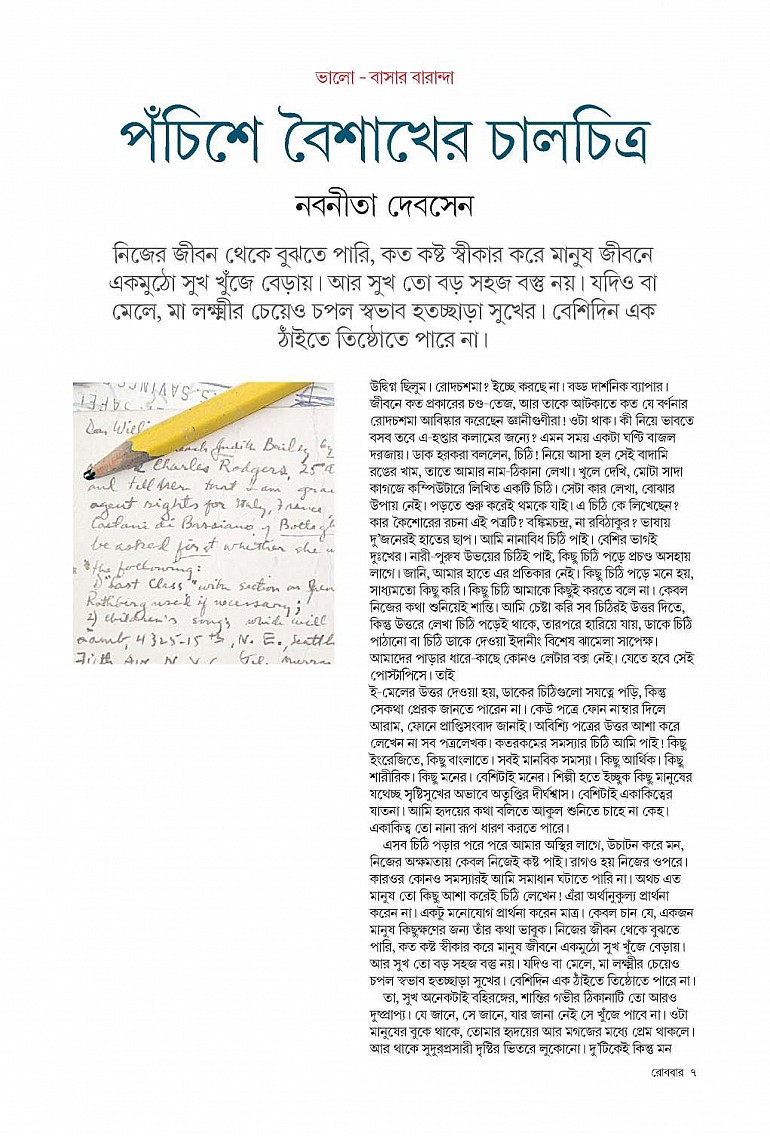 ভালো - বাসার বারান্দা
পঁচিশে বৈশাখের চালচিত্র
নবনীতা দেবসেন
নিজের জীবন থেকে বুঝতে পারি, কত কষ্ট স্বীকার করে মানুষ জীবনে
একমুঠো সুখ খুঁজে বেড়ায়। আর সুখ তো বড় সহজ বস্তু নয়। যদিও বা
মেলে, মা লক্ষ্মীর চেয়েও চপল স্বভাব হতচ্ছাড়া সুখের। বেশিদিন এক
ঠাঁইতে তিষ্ঠোতে পারে না।
Charles Rodgers, 25
and tell them that I am
agent rights for Italy, France,
be asked first whether she
the following:
1) "Last Class" with section on
Rothberg used if necessary;
2) Children's songs which will
4325-15th, N. E., Seattle
উদ্বিগ্ন ছিলুম। রোদচশমা? ইচ্ছে করছে না। বড্ড দার্শনিক ব্যাপার।
জীবনে কত প্রকারের চণ্ড-তেজ, আর তাকে আটকাতে কত যে বর্ণনার
রোদচশমা আবিষ্কার করেছেন জ্ঞানীগুণীরা! ওটা থাক। কী নিয়ে ভাবতে
বসব তবে এ-হপ্তার কলামের জন্যে? এমন সময় একটা ঘণ্টি বাজল
দরজায়। ডাক হরকরা বললেন, চিঠি! নিয়ে আসা হল সেই বাদামি
রঙের খাম, তাতে আমার নাম-ঠিকানা লেখা। খুলে দেখি, মোটা সাদা
কাগজে কম্পিউটারে লিখিত একটি চিঠি। সেটা কার লেখা, বোঝার
উপায় নেই। পড়তে শুরু করেই থমকে যাই। এ চিঠি কে লিখেছেন?
কার কৈশোরের রচনা এই পত্রটি? বঙ্কিমচন্দ্র, না রবিঠাকুর? ভাষায়
দু'জনেরই হাতের ছাপ। আমি নানাবিধ চিঠি পাই। বেশির ভাগই
দুঃখের। নারী-পুরুষ উভয়ের চিঠিই পাই, কিছু চিঠি পড়ে প্রচণ্ড অসহায়
লাগে। জানি, আমার হাতে এর প্রতিকার নেই। কিছু চিঠি পড়ে মনে হয়,
সাধ্যমতো কিছু করি। কিছু চিঠি আমাকে কিছুই করতে বলে না। কেবল
নিজের কথা শুনিয়েই শান্তি। আমি চেষ্টা করি সব চিঠিরই উত্তর দিতে,
কিন্তু উত্তরে লেখা চিঠি পড়েই থাকে, তারপরে হারিয়ে যায়, ডাকে চিঠি
পাঠানো বা চিঠি ডাকে দেওয়া ইদানীং বিশেষ ঝামেলা সাপেক্ষ।
আমাদের পাড়ার ধারে-কাছে কোনও লেটার বক্স নেই। যেতে হবে সেই
পোস্টাপিসে। তাই
ই-মেলের উত্তর দেওয়া হয়, ডাকের চিঠিগুলো সযত্নে পড়ি, কিন্তু
সেকথা প্রেরক জানতে পারেন না। কেউ পত্রে ফোন নাম্বার দিলে
আরাম, ফোনে প্রাপ্তিসংবাদ জানাই। অবিশ্যি পত্রের উত্তর আশা করে
লেখেন না সব পত্রলেখক। কতরকমের সমস্যার চিঠি আমি পাই! কিছু
ইংরেজিতে, কিছু বাংলাতে। সবই মানবিক সমস্যা। কিছু আর্থিক। কিছু
শারীরিক। কিছু মনের। বেশিটাই মনের। শিল্পী হতে ইচ্ছুক কিছু মানুষের
যথেচ্ছ সৃষ্টিসুখের অভাবে অতৃপ্তির দীর্ঘশ্বাস। বেশিটাই একাকিত্বের
যাতনা। আমি হৃদয়ের কথা বলিতে আকুল শুনিতে চাহে না কেহ।
একাকিত্ব তো নানা রূপ ধারণ করতে পারে।
এসব চিঠি পড়ার পরে পরে আমার অস্থির লাগে, উচাটন করে মন,
নিজের অক্ষমতায় কেবল নিজেই কষ্ট পাই। রাগও হয় নিজের ওপরে।
কারওর কোনও সমস্যারই আমি সমাধান ঘটাতে পারি না। অথচ এত
মানুষ তো কিছু আশা করেই চিঠি লেখেন! এঁরা অর্থানুকুল্য প্রার্থনা
করেন না। একটু মনোযোগ প্রার্থনা করেন মাত্র। কেবল চান যে, একজন
মানুষ কিছুক্ষণের জন্য তাঁর কথা ভাবুক। নিজের জীবন থেকে বুঝতে
পারি, কত কষ্ট স্বীকার করে মানুষ জীবনে একমুঠো সুখ খুঁজে বেড়ায়।
আর সুখ তো বড় সহজ বস্তু নয়। যদিও বা মেলে, মা লক্ষ্মীর চেয়েও
চপল স্বভাব হতচ্ছাড়া সুখের। বেশিদিন এক ঠাঁইতে তিষ্ঠোতে পারে না।
তা, সুখ অনেকটাই বহিরঙ্গের, শান্তির গভীর ঠিকানাটি তো আরও
দুষ্প্রাপ্য। যে জানে, সে জানে, যার জানা নেই সে খুঁজে পাবে না। ওটা
মানুষের বুকে থাকে, তোমার হৃদয়ের আর মগজের মধ্যে প্রেম থাকলে।
আর থাকে সুদূরপ্রসারী দৃষ্টির ভিতরে লুকোনো। দু'টিকেই কিন্তু মন
রোববার ৭